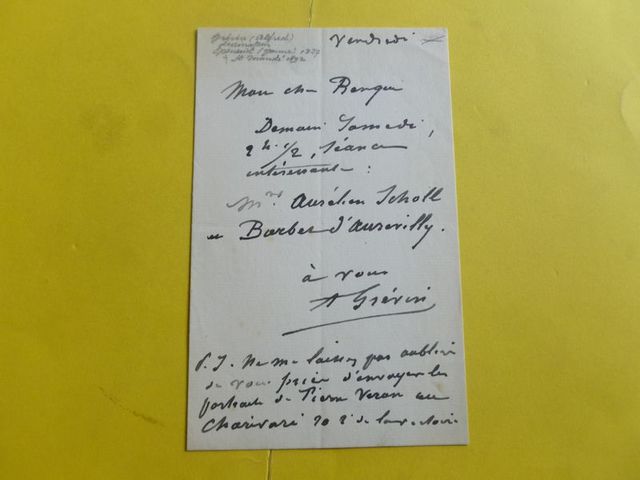 Grévin (Alfred)
dessinateur
Epineuil (Yonne) 1827
St Mandé 1892
Vendredi
Mon cher Bergue
Demain Samedi,
2 h. 1/2, Séance
intéressante :
Mrs. Aurélien Scholl
et Barbey d'Aurevilly.
à vous
A Grévin
P.S. Ne me laissez pas oublier
de vous prier d'envoyer les
portraits de Pierre Veron au
Charivari 20 r de la victoire